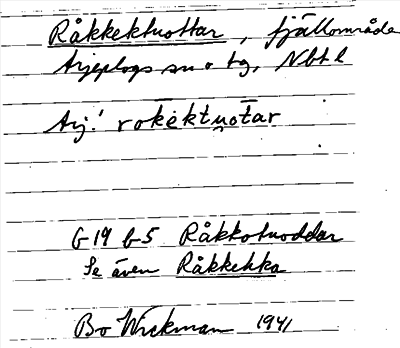 Råkkektuottar, fjällområde
Arjeplogs sn o tg, Nbt l
Arj.! rokėktu̯ōtar
G 19 b 5 Råkkotuoddar
Se även Råkkehka
Bo Wickman 1941